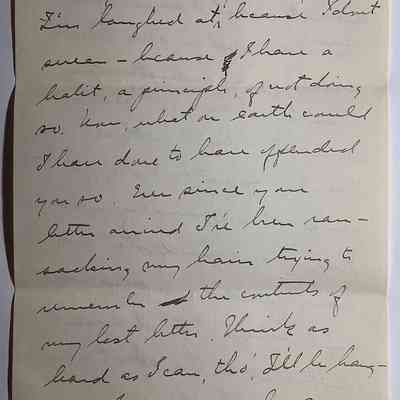 I'm laughed at, because I don't
swear - because I have a
habit, a principle, of not doing
so. Now, what on earth could
I have done to have offended
you so. Ever since your
letter arrived I've been ran-
sacking my brain trying to
remember the contents of
my last letter. Think as
hard as I can, tho', I'll be hang-